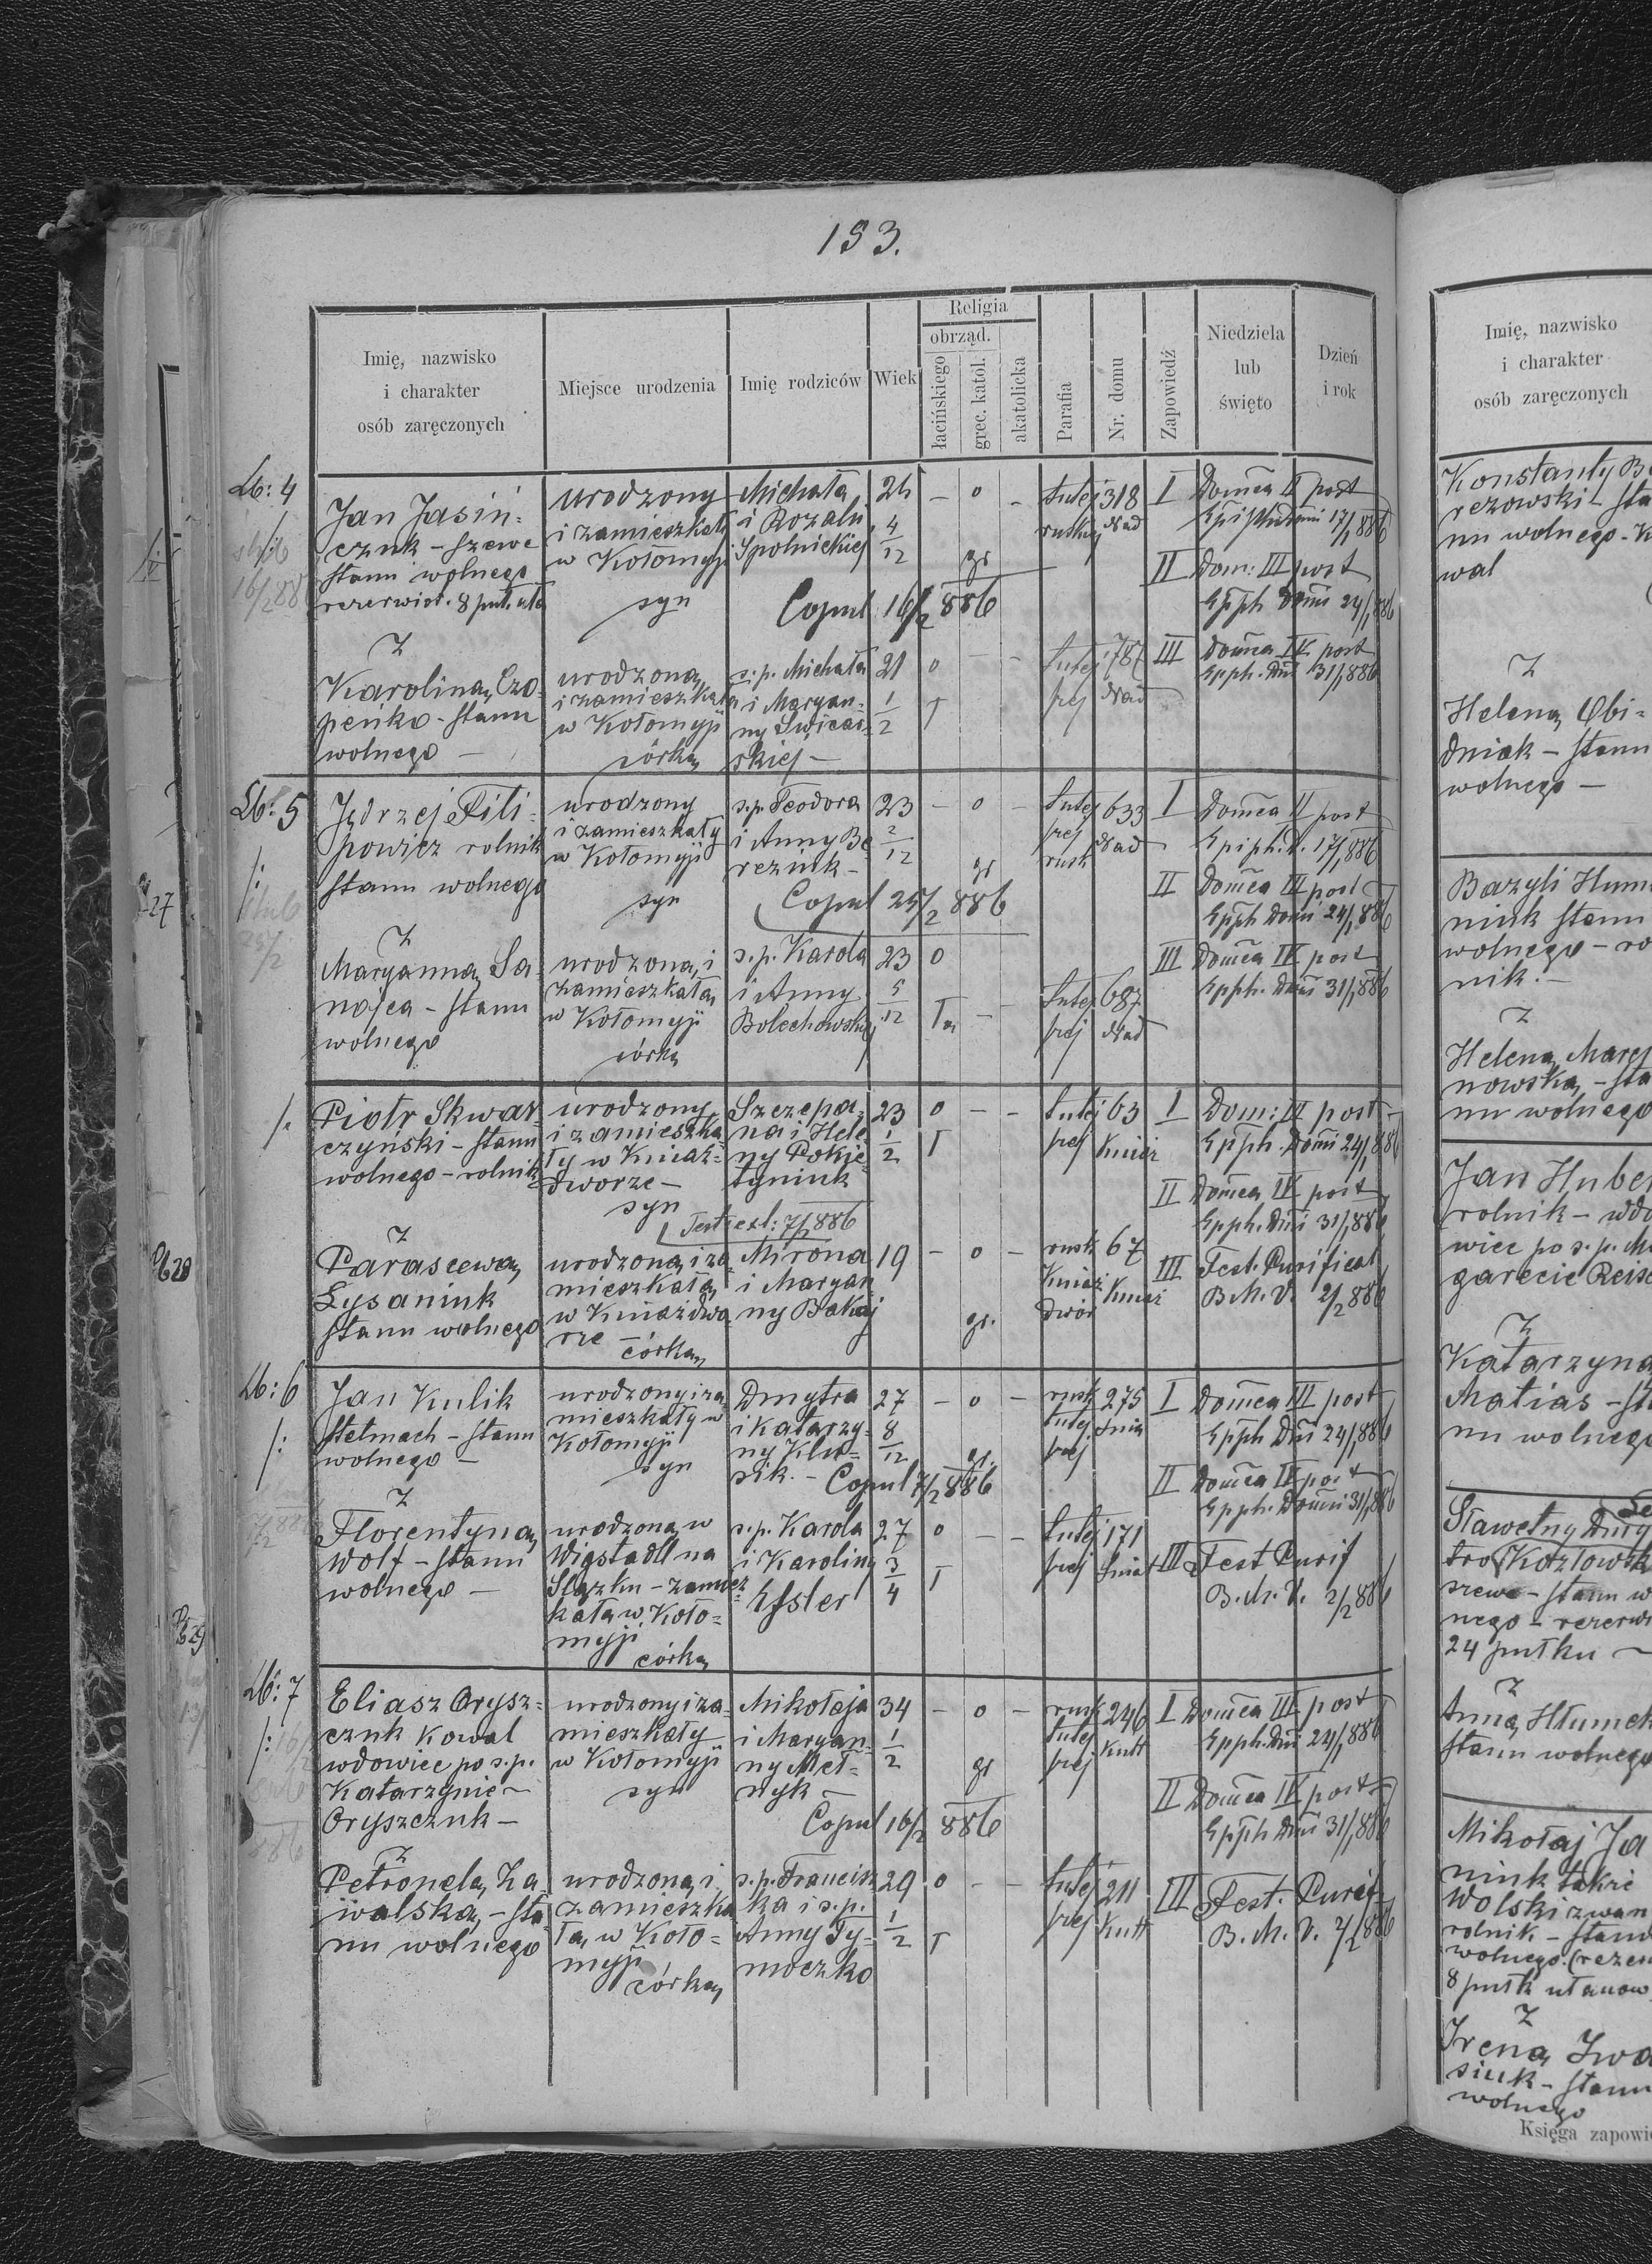 193.
Religia
obrząd.
Imię, nazwisko
i charakter
osób zaręczonych
Miejsce urodzenia
Imię rodziców
Wiek
łacińskiego
grec. katol.
akatolicka
Parafia
Nr. domu
Zapowiedź
Niedziela
lub
święto
Dzień
i rok
Lb: 4
Jan Jasiń-
czuk - szewc
stanu wolnego
urodzony
i zamieszkały
w Kołomyji
syn
Michała
i Rozalii
Spolnickiej
4
12
gr
Copul 16/2 886
tutej
318
Nad
I Domca II post
17/1 886
II Dom: III post
Epph Domi 24/1 886
z
Karolina Czo-
peńko - stanu
wolnego —
urodzona
i zamieszkała
w Kołomyji
córka
ś.p. Michała
i Maryan-
ny Święcic-
skiej —
21
1
2
o
T
tutej
Nad
III Domca IV post
Epph. Dni 31/1 886
Lb: 5
Jędrzej Fili-
powicz rolnik
stanu wolnego
urodzony
i zamieszkały
w Kołomyji
syn
ś.p. Teodora
i Anny Be-
reziuk -
23
2
12
- o -
gr
Copul 25/2 886
tutej
rusk
633
Nad
I Domca II post
Epiph. D. 17/1 886
II Domca III post
Epph Domi 24/1 886
z
Maryanna Sa-
nojca - stanu
wolnego
urodzona i
zamieszkała
w Kołomyji
córka
ś.p. Karola
i Anny
Bolechowskiej
23
5
12
o
tutej
687
Nad
III Domca IV post
Epph. Dni 31/1 886
Piotr Skwar-
czyński - stanu
wolnego - rolnik
urodzony
i zamieszka-
ły w Kniaź-
dworze -
syn
Szczepa-
na i Hele-
ny Pokie-
tyniuk
23
1
2
o - -
T
tutej
63
Kniaź
I Dom: III post
Epph. Domi 24/1 886
II Domca IV post
Epph. Dni 31/1 886
Test. exl: 7/2 886
z
Parascewa
Łysaniuk
stanu wolnego
urodzona i za-
mieszkała
w Kniaźdwo-
rze -
córka
Mirona
i Maryan-
ny Bakaj
19
- o -
gr.
rusk
Kniaź
dwór
67
Kniaź
III Fest. Purificat
B.M.V. 2/2 886
Lb: 6
Jan Kulik
Stelmach - stanu
wolnego —
urodzony i za-
mieszkały w
Kołomyji
syn
Dmytra
i Katarzy-
27
8
12
- o -
gr.
Copul 7/2 886
rusk
tutej
275
I Domca III post
Epph Dni 24/1 886
II Domca IV post
Epph. Domini 31/1 886
z
Florentyna
Wolf - stanu
wolnego —
urodzona w
Wigstadtl na
Slązku - zamiesz-
kała w Koło-
myji
córka
ś.p. Karola
i Karoliny
Essler
27
3
4
o - -
T
tutej
171
III Fest Purif
B.M.V. 2/2 886
Lb: 7
Eliasz Orysz-
czuk Kowal
wdowiec po ś.p.
Katarzynie
Oryszczuk -
urodzony i za-
mieszkały
w Kołomyji
syn
Mikołaja
i Maryan-
ny Meł-
nyk -
34
1
2
- o -
gr
Copul 16/2 886
rusk
tutej
246
Kutt
I Domca III post
Epph. Dni 24/1 886
II Domca IV post
Epph Dni 31/1 886
z
Petronela Za-
walska - sta-
nu wolnego
urodzona i
zamieszka-
ła w Koło-
myji
córka
ś.p. Francisz-
ka i ś.p.
Anny Ty-
moczko
29
1
2
o - -
T
tutej
211
Kutt
III Fest. Purif
B.M.V. 2/2 886
Imię, nazwisko
i charakter
osób zaręczonych
Konstanty
rezowski - sta
nu wolnego - K
wal
z
Helena Obi-
dniak - stanu
wolnego -
Bazyli Hum
niuk stanu
wolnego - ro
nik. -
z
Helena Marcy
nowska - sta
nu wolnego
Jan Huber
rolnik - wdo
wiec po ś.p. M
garecie Reis
z
Katarzyna
Matias - sta
nu wolnego
Sławetny Dmy
tro Kozłowsk
szewc - stanu w
nego - rezerwi
24 pułku -
z
Anna Hłumek
stanu wolnego
Mikołaj Ja
niuk także
Wolski zwan
rolnik - stanu
wolnego. (rezer
8 pułk ułanow
z
Irena Iwa
siuk - stanu
wolnego
Księga zapowie